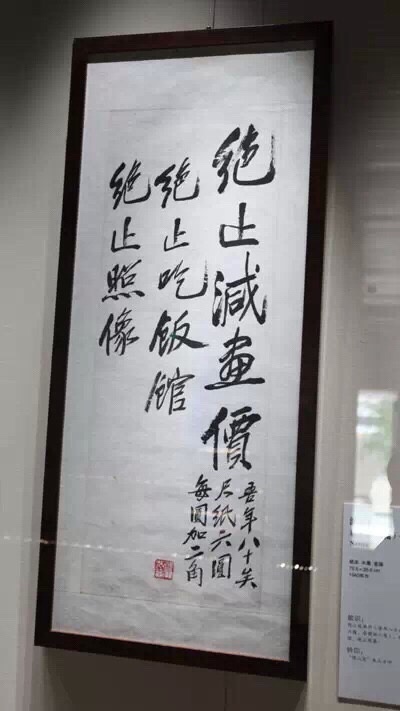 絕止減畫價
絕止吃飯館
絕止照像
吾年八十矣
尺紙六圓
每圓加二角